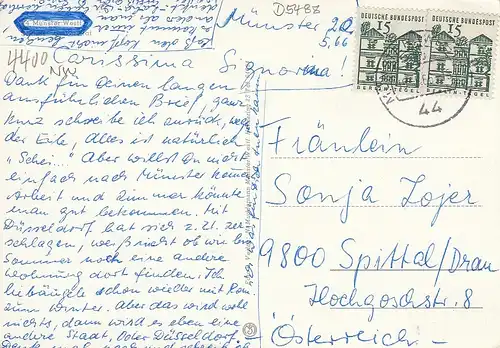 Münster Westf
D5488
Münster
2.2.
5.66
4400
NW
Carissima
Signorina!
Dank für Deinen langen
ausführlichen Brief, ganz
kurz schreibe ich zurück, weg.
der Eile, Alles ist natürlich
„Schei..." Aber willst Du nicht
einfach nach Münster kommen
Arbeit und Zimmer könnte
man gut bekommen. Mit
Düsseldorf hat sich z.Zt. zer
schlagen, wer weiß ob wir bis
Sommer noch eine andere
Wohnung dort finden. Ich
liebäugle schon wieder mit Rom
zum Winter. Aber das wird wohl
nichts, dann wird es eben eine
andere Stadt, Oder Düsseldorf.
DEUTSCHE BUNDESPOST
DEUTSCHE BUNDESPOST
15
15
44
Fräulein
Sonja Lojer
9800 Spittal/Drau
Hochgoschstr. 8
Österreich